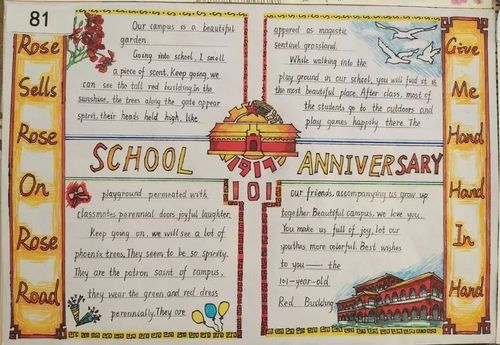 81
Rose
Sells
Rose
On
Rose
Road
Our campus is a beautiful
garden.
Going into school, I smell
a piece of scent. Keep going, we
can see the tall red building. In the
sunshine, the trees along the gate appear
spirit, their heads held high, like
appered as magistic
sentinel grassland.
While walking into the
play ground in our school, you will find it is
the most beautiful place. After class, most of
the students go to the outdoors and
play games happily there. The
SCHOOL
ANNIVERSARY
1917
101
playground permeated with
classmates perennial door joyful laughter.
Keep going on, we will see a lot of
phoenix trees. They seem to be so spirity.
They are the patron saint of campus,
they wear the green and red dress
perennially. They are
our friends, accompanying us grow up
together. Beautiful campus, we love you.
You make us full of joy, let our
youths more colorful. Best wishes
to you—— the
101-year-old
Red Building
Give
Me
Hand
Hand
In
Hand